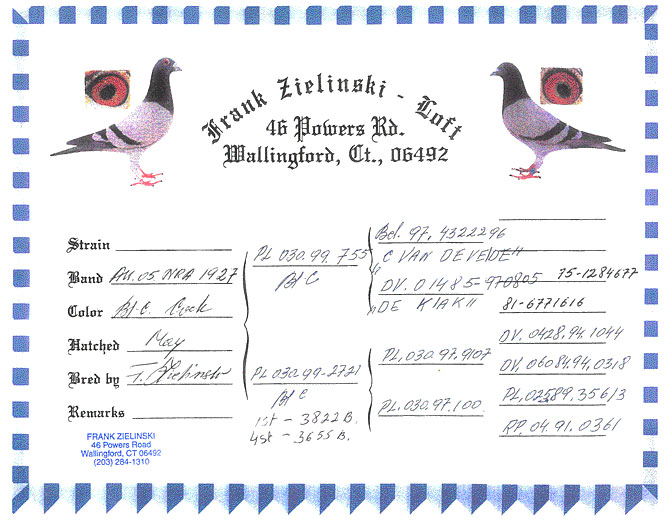 Frank Zielinski - Loft
46 Powers Rd.
Wallingford, Ct., 06492
Strain
Band AU.05 NRA 1927
Color Bl-C. Cock
Hatched May
Bred by F. Zielinski
Remarks
FRANK ZIELINSKI
46 Powers Road
Wallingford, CT 06492
(203) 284-1310
PL 030.99 755
Bl C
PL 030.99-2721
Bl C
1st - 3822 B.
4st - 3655 B.
Bel. 97. 4322296
"C VAN DE VELDE"
DV. 01485-970805
"DE KIAK"
PL. 030.97.9107
PL. 030.97.100
75-1284677
81-6771616
DV. 0428.94.1044
DV. 06084.94.0318
PL, 02589.35613
RP. 04.91.0361